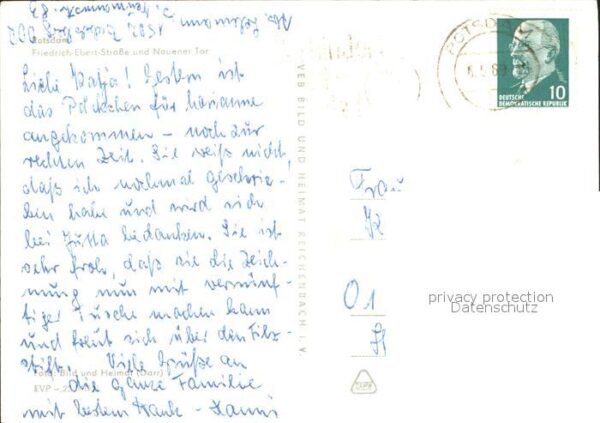 Potsdam
Friedrich-Ebert-Straße und Nauener Tor
Liebe Katja! Gestern ist
das Päckchen für Marianne
angekommen – noch zur
rechten Zeit. Sie weiß nicht,
daß ich nochmal geschrie-
ben habe und wird sich
bei Jutta bedanken. Sie ist
sehr froh, daß sie die Zeich-
nung nun mit vernünf-
tiger Tusche machen kann
und freut sich über den Filz-
stift. Viele Grüße an
Foto: Bild und Heimat (Darr)
die ganze Familie
EVP
mit bestem Dank –
VEB BILD UND HEIMAT REICHENBACH I. V.
POTSDAM
DEUTSCHE
DEMOKRATISCHE REPUBLIK
10
Frau
privacy protection
Datenschutz